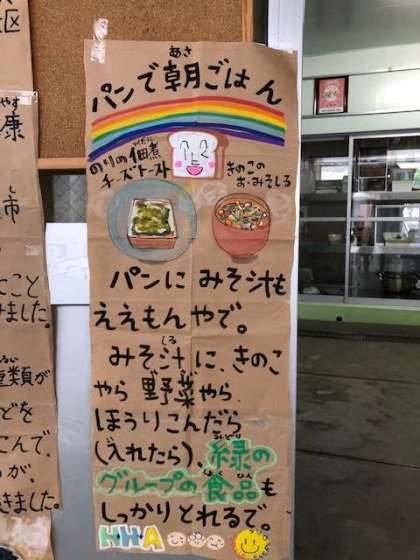 区
やす
康
市
こと
みました。
類が
どを
こんで、
が、
きました。
あさ
パンで朝ごはん
のりの佃煮
チーズトースト
きのこの
お・みそしる
パンに みそ汁も
ええもんやで。
しる
みそ汁に、きのこ
やら 野菜やら、
ほうりこんだら
(入れたら)、緑の
グループの食品も
しっかりとれるで。
HHA